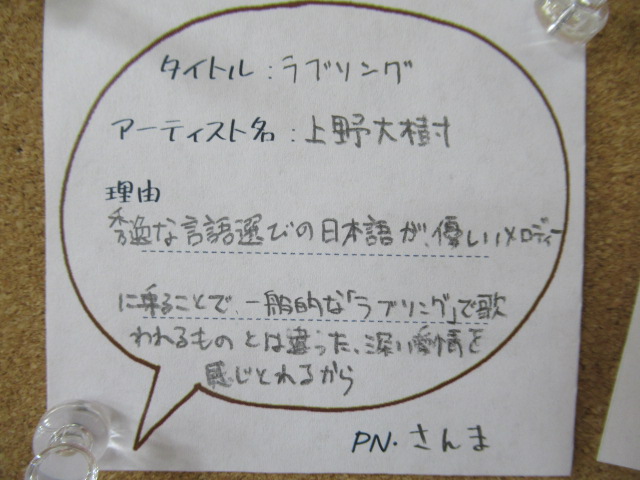 タイトル：ラブソング
アーティスト名：上野大樹
理由
秀逸な言語選びの日本語が、優しいメロディー
に乗ることで、一般的な「ラブソング」で歌
われるものとは違った、深い愛情を
感じとれるから
PN.さんま